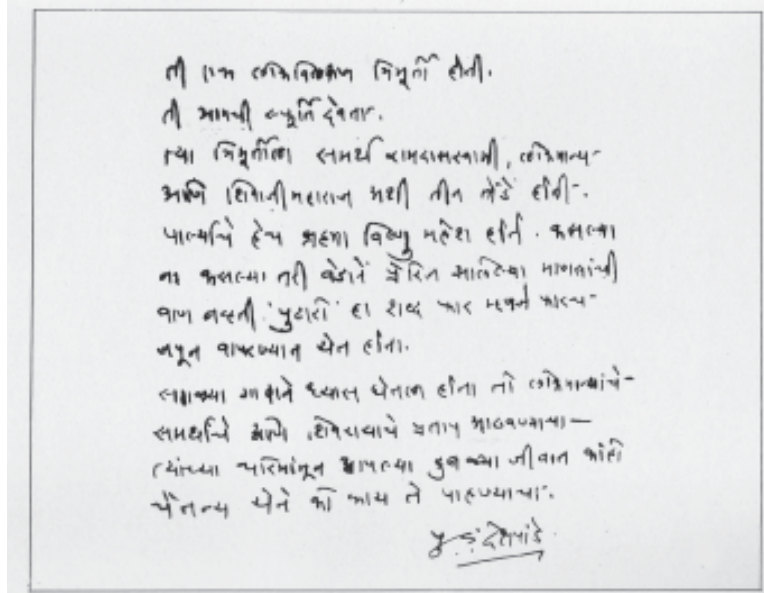 ती एक लोकविलक्षण त्रिमूर्ती होती.
ती आमची स्फूर्तिदेवता.
त्या त्रिमूर्तीला समर्थ रामदासस्वामी, लोकमान्य
आणि शिवाजीमहाराज अशी तीन तोंडें होती.
पार्ल्याचे हेच ब्रह्मा विष्णु महेश होते. कसल्या
ना कसल्या तरी वेडाने प्रेरित झालेल्या माणसांची
वाण नव्हती. 'पुढारी' हा शब्द फार म्हणजे फारच
जपून वापरण्यात येत होता.
सगळ्या गावाने ध्यास घेतला होता तो लोकमान्यांचे
समर्थांचे आणि शिवरायाचे प्रताप आठवण्याचा—
त्यांच्या चरित्रांतून आपल्या दुबळ्या जीवात कांही
चैतन्य येते कां काय ते पाहण्याचा.
पु. ल. देशपांडे